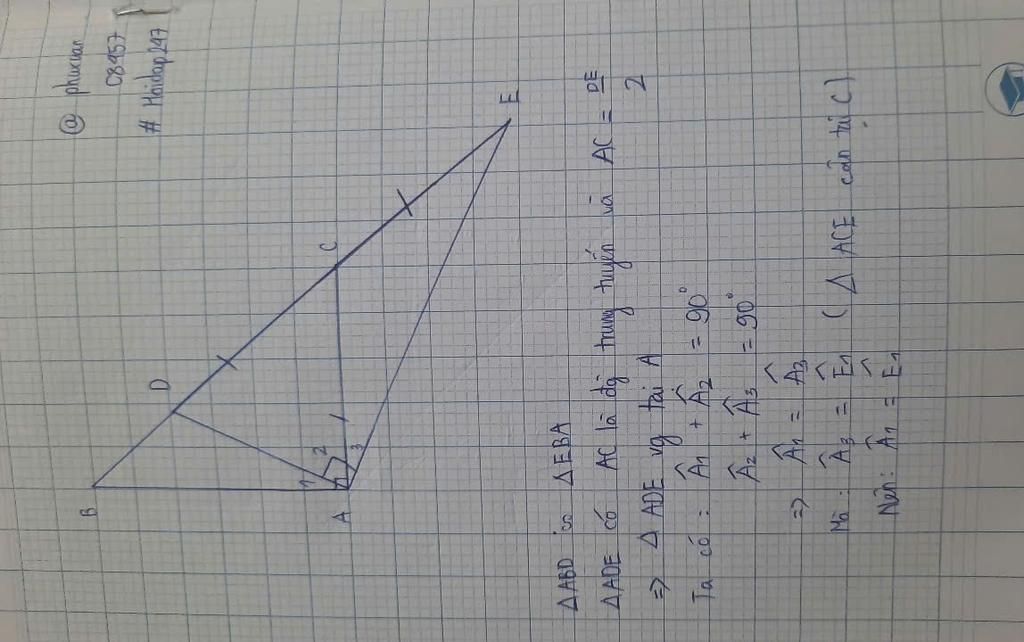 @ phuxuan
08457
# Hoidap247
B
D
C
E
A
1
2
3
ΔABD ∽ ΔEBA
ΔADE có AC là đg trung tuyến và AC = DE/2
=> Δ ADE vg tại A
Ta có : Â1 + Â2 = 90°
Â2 + Â3 = 90°
=> Â1 = Â3
Mà : Â3 = Ê1 ( Δ ACE cân tại C )
Nên : Â1 = Ê1